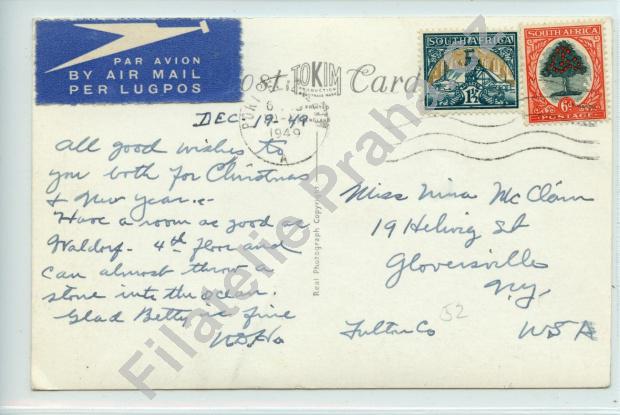 PAR AVION
BY AIR MAIL
PER LUGPOS
Post Card
TOKIM
SOUTH AFRICA
1½D
SOUTH AFRICA
6D
POSTAGE
1949
A
DEC 19-49
All good wishes to
you both for Christmas
& New Year.-
Have a room as good as
Waldorf - 4th floor and
can almost throw a
stone into the ocean.
Glad Betty is fine
Real Photograph Copyright
Miss Nina McClain
19 Helwig St
Gloversville
N.Y.
Fulton Co
USA
52
Filatelie Praha